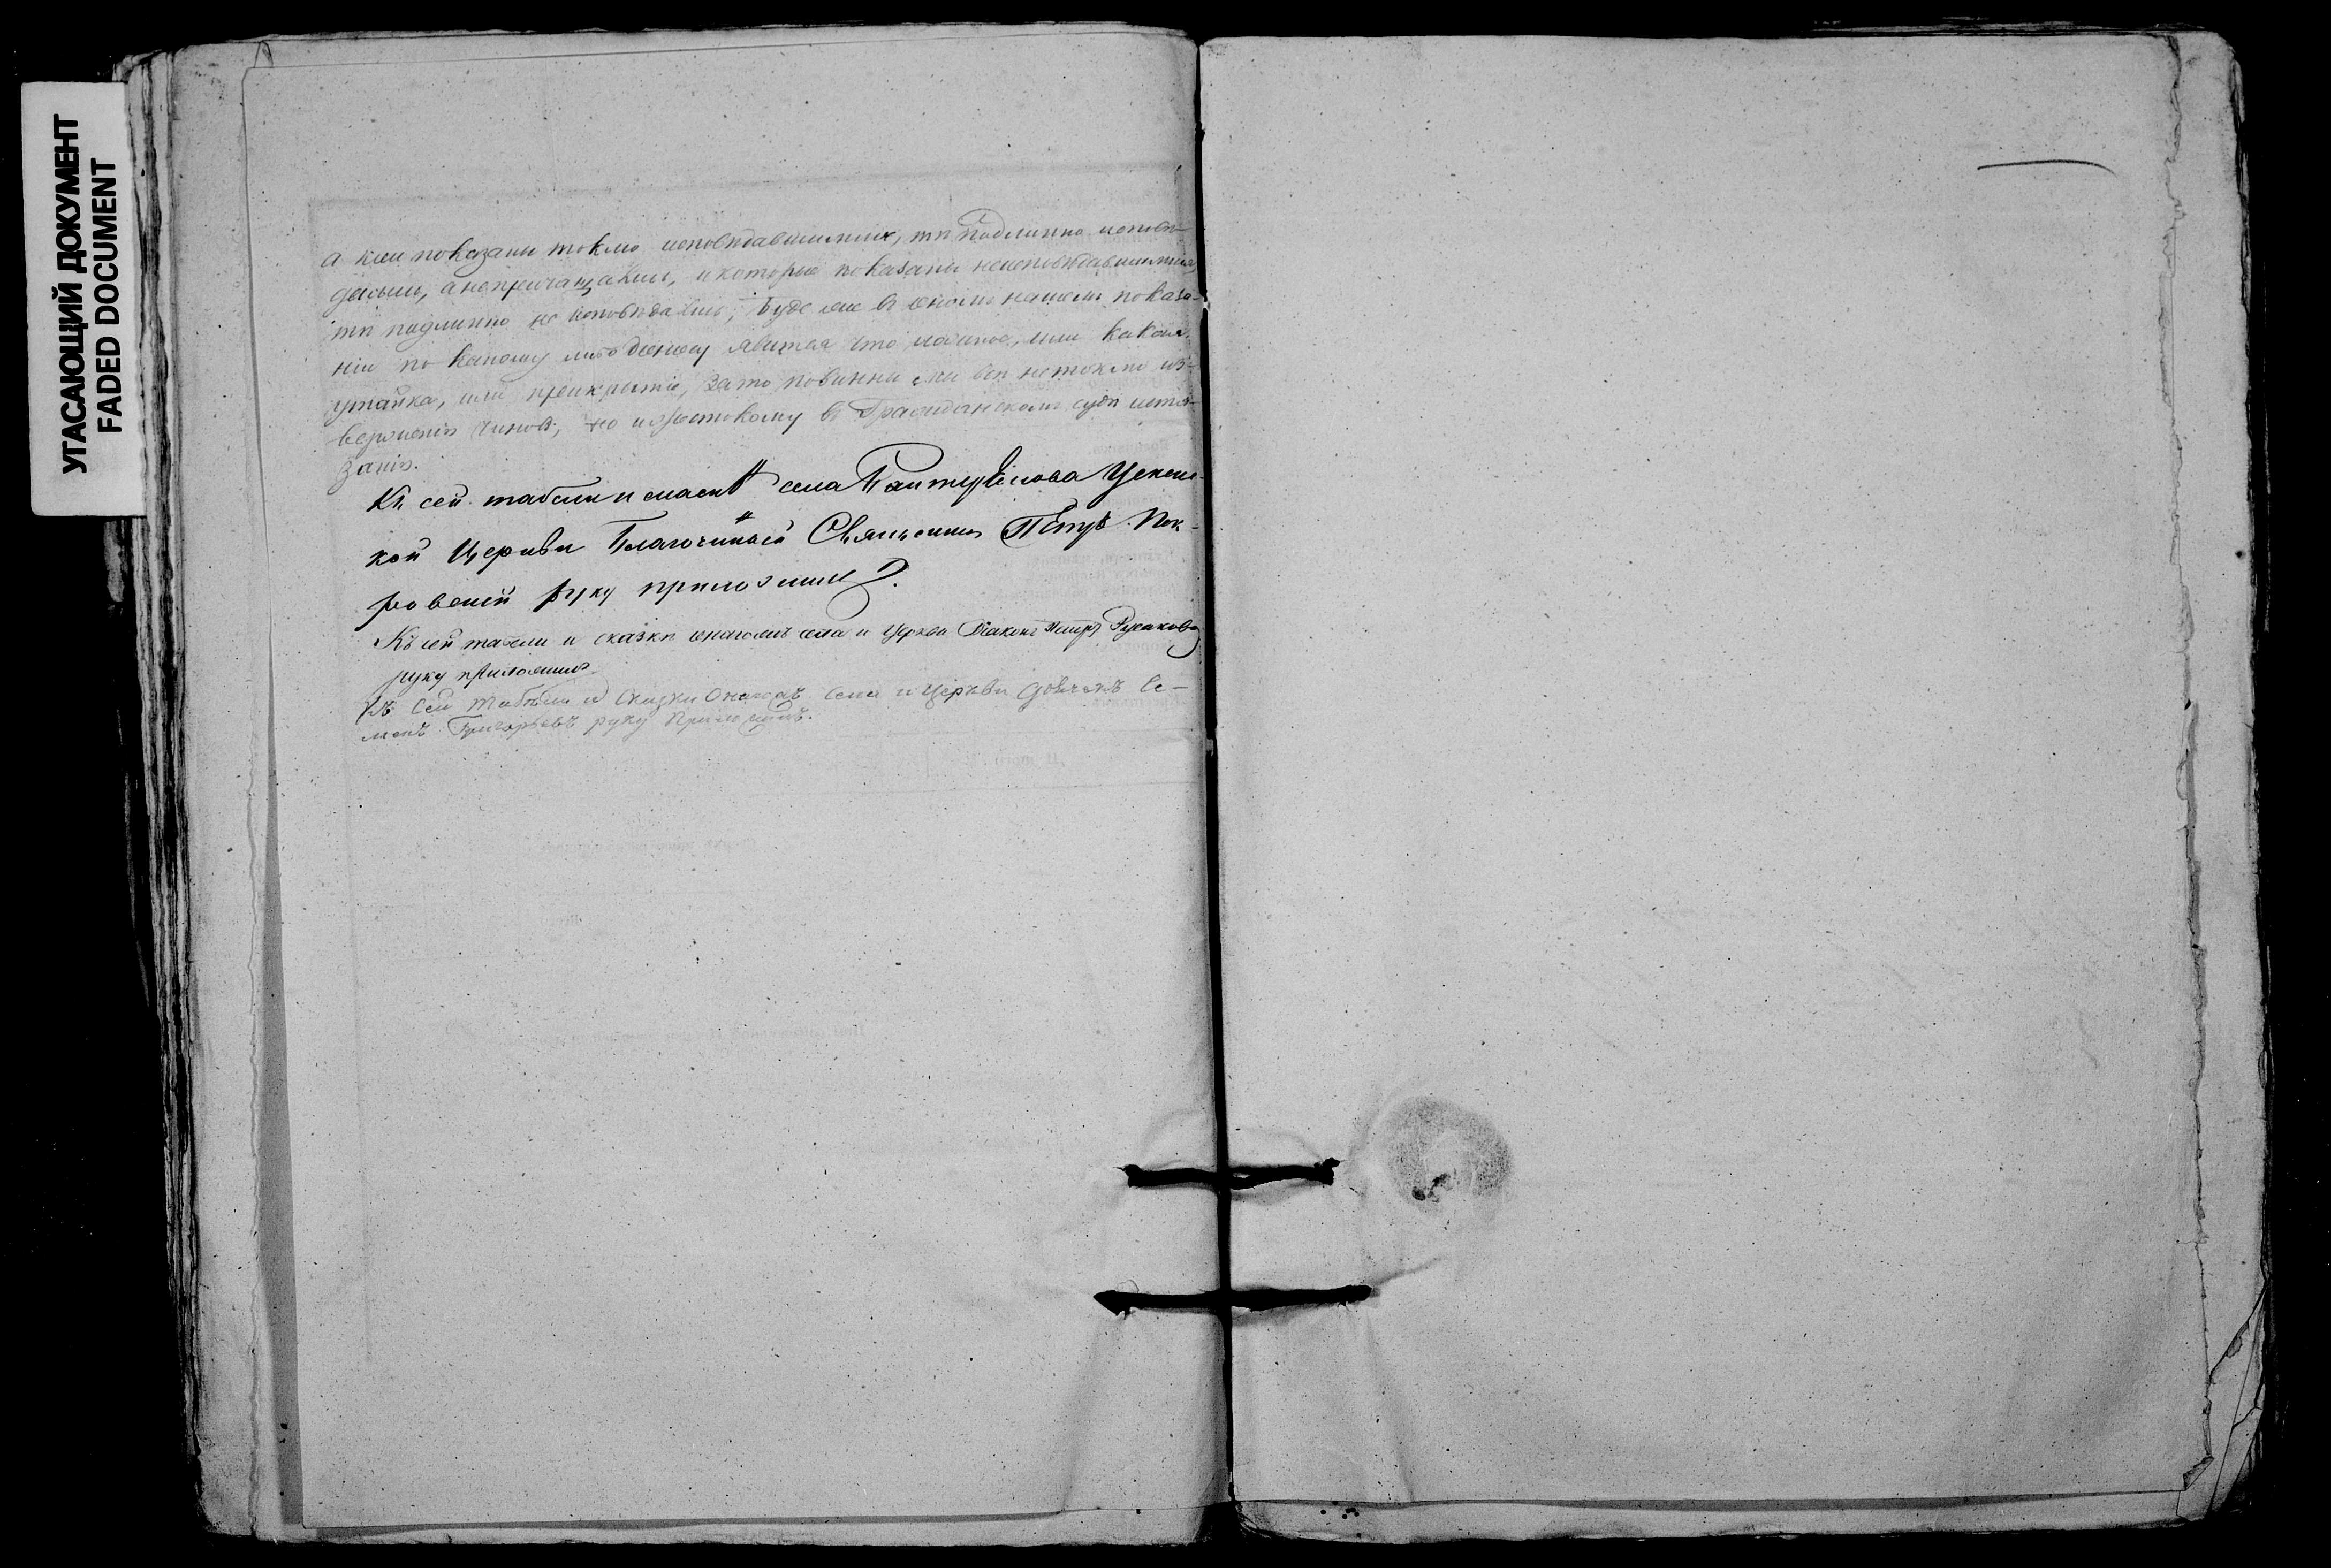 УГАСАЮЩИЙ ДОКУМЕНТ
FADED DOCUMENT
а кои показаны токмо исповѣдавшимися, тѣ подлинно исповѣ-
дались, а непричащались, и которые показаны неисповѣдавшимися
тѣ подлинно не исповѣдались; Буде же въ ономъ нашемъ показа-
нiи по кемому либо явится что ложное, или какая
утайка, или прикрытiе, зато повинны мы всѣ нетокмо из-
верженiя чиновъ, но и жестокому въ Гражданскомъ судѣ истя-
занiю.
Къ сей табели и села
кой Церкви Благочинный Священникъ Петръ Пок-
ровскiй руку приложилъ.
Къ сей табели и сказки онагожъ села и Церкви Дiаконъ Петръ Русаковъ
руку приложилъ.
Къ сей табѣли и сказки онагожъ села и Церькви дьячекъ Се-
менъ Григорьевъ руку приложилъ.